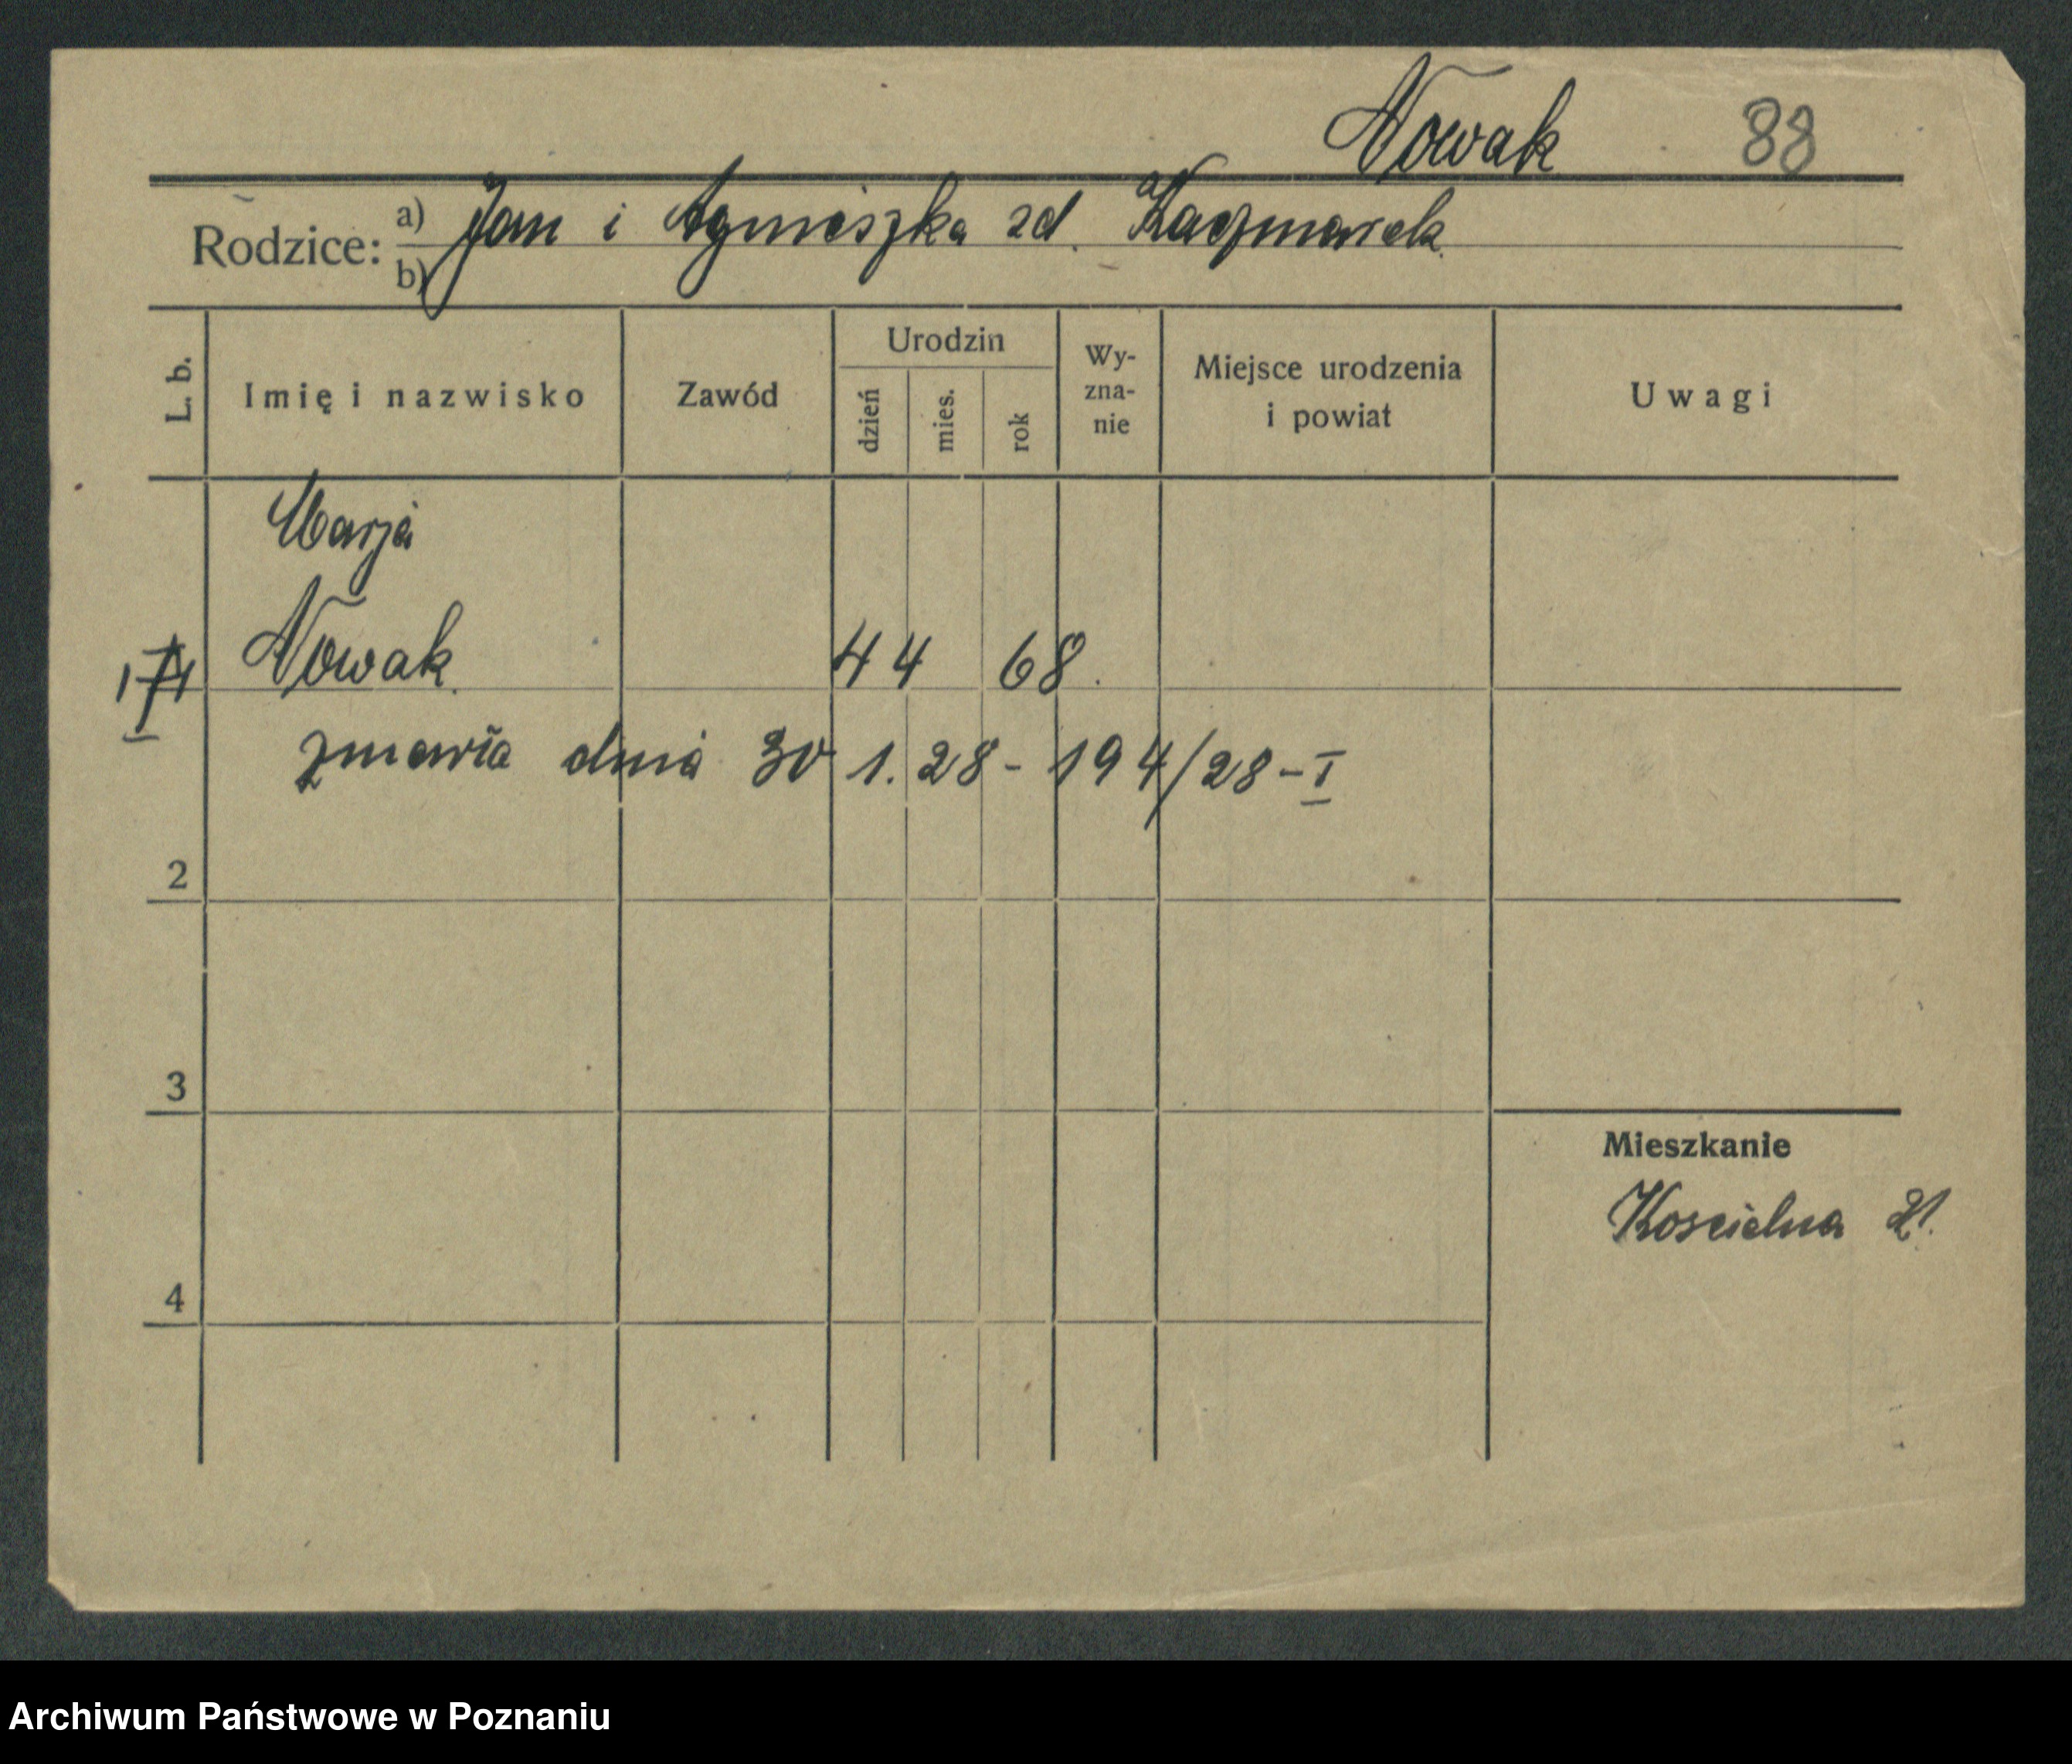 Nowak 88
Rodzice: a) Jan i Agnieszka zd. Kaczmarek
b)
L. b. Imię i nazwisko Zawód Urodzin dzień mies. rok Wy-zna-nie Miejsce urodzenia i powiat Uwagi
Marja
Nowak 4 4 68.
zmarła dnia 30 1. 28 - 194/28 - I
2
3
Mieszkanie
Koscielna 21.
4
Archiwum Państwowe w Poznaniu